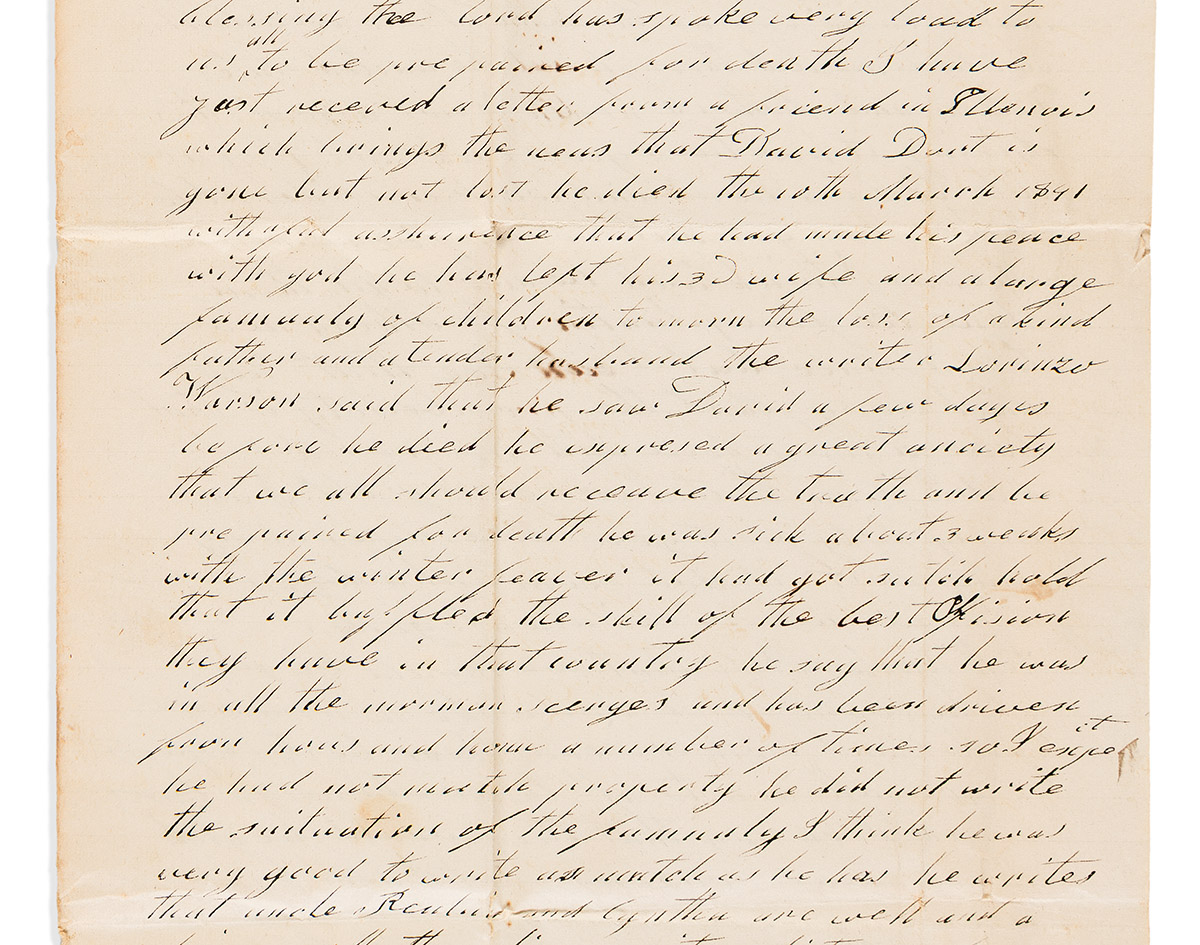 blessing the lord has spoke very loud to
all
us to be prepaired for death I have
just receved a letter from a friend in Illenois
which brings the neus that David Dort is
gone but not lost he died the 10th March 1841
with asshurence that he had made his peace
with god he has left his 3D wife and a large
famualy of children to morn the loss of a kind
father and a tender husband the writer Lorinzo
Warson said that he saw David a few days
before he died he expresed a great anciety
that we all should receave the truth and be
prepaired for death he was sick about 3 weaks
with the winter feaver it had got sutch hold
that it baffled the skill of the best
they have in that country he say that he was
in all the mormon scenges and has been driven
from hous and home a number of times so I expe
it
he had not mutch property he did not write
the suituation of the famualy I think he was
very good to write as mutch as he has he writes
that uncle Reubin and Cynthia are well and a